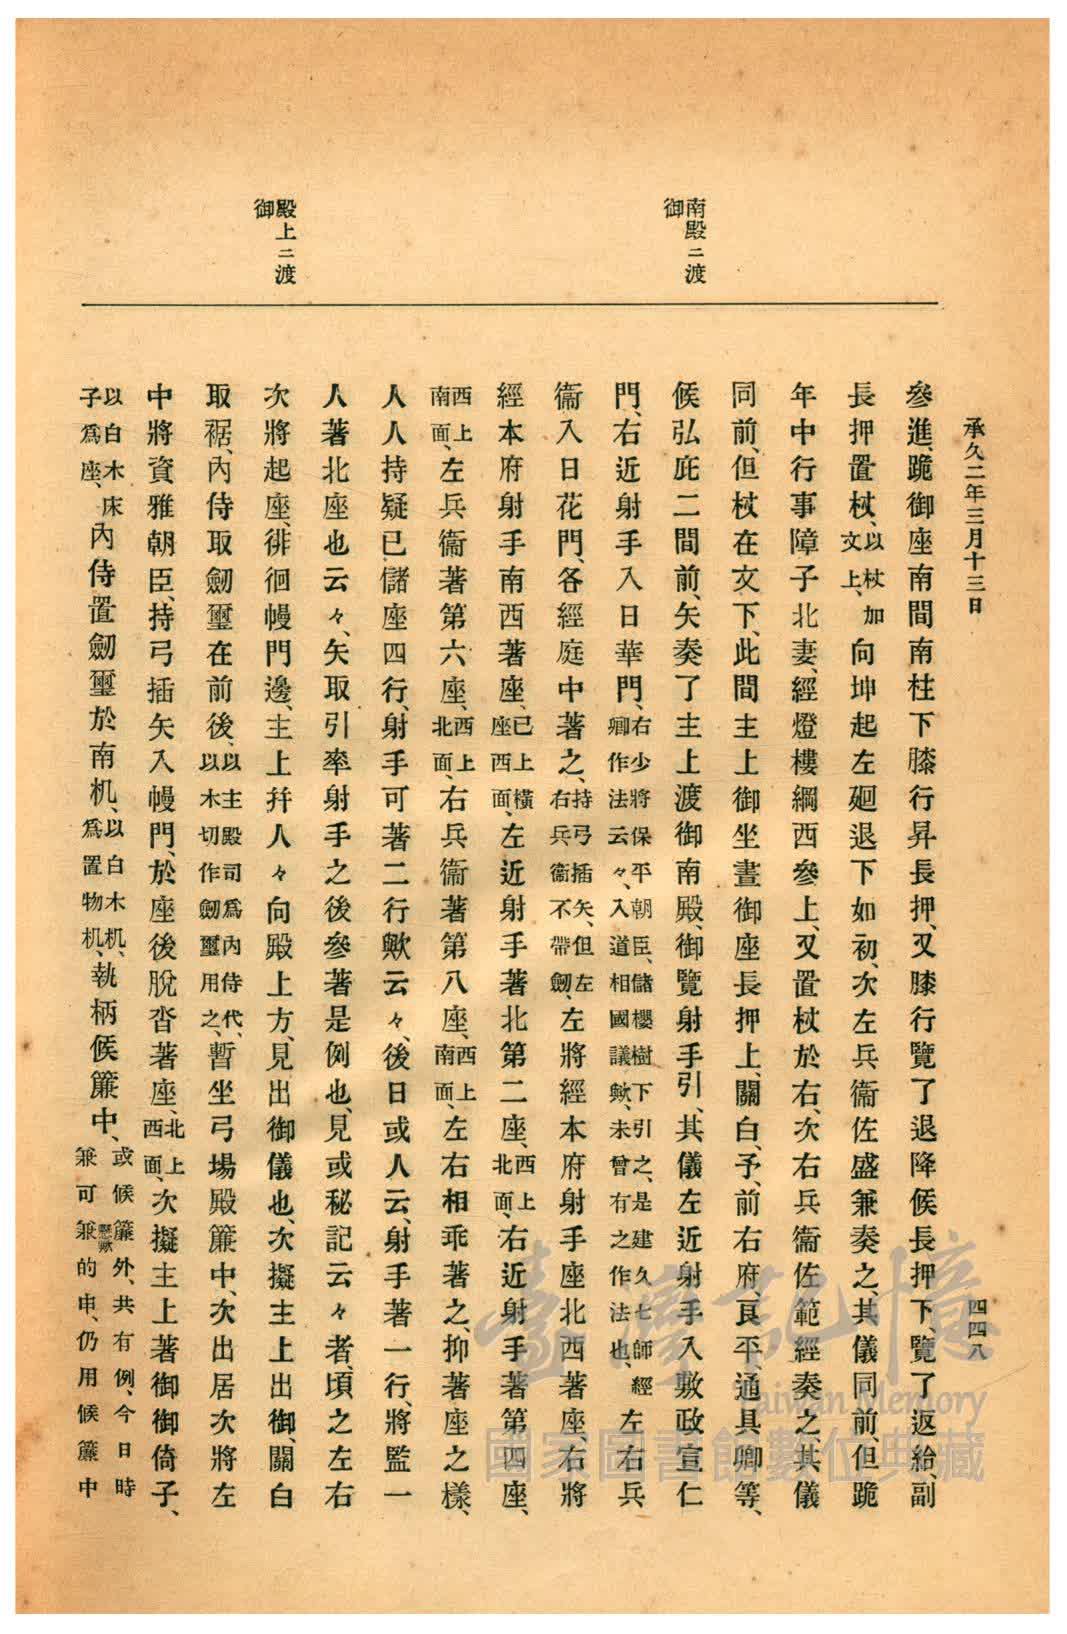 承久二年三月十三日
四四八
南殿ニ渡
御
殿上ニ渡
御
參進、跪御座南間南柱下膝行昇長押、又膝行覽了退降候長押下、覽了返給、副
長押置杖、以杖加文上、向坤起左廻退下如初、次左兵衞佐盛兼奏之、其儀同前、但跪
年中行事障子北妻、經燈樓綱西參上、又置杖於右、次右兵衞佐範經奏之、其儀
同前、但杖在文下、此間主上御坐晝御座長押上、關白、予、前右府、良平、通具卿等、
候弘庇二間前、矢奏了主上渡御南殿、御覽射手引、其儀左近射手入敷政宣仁
門、右近射手入日華門、右少將保平朝臣、儲櫻樹下引之、是建久七師經卿作法云々、入道相國議歟、未曾有之作法也、左右兵
衞入日花門、各經庭中著之、持弓插矢、但左右兵衞不帶劒、左將經本府射手座北西著座、右將
經本府射手南西著座、已上橫座西面、左近射手著北第二座、西上北面、右近射手著第四座、
西上南面、左兵衞著第六座、西上北面、右兵衞著第八座、西上南面、左右相乖著之、抑著座之樣、
人人持疑已、儲座四行、射手可著二行歟云々、後日或人云、射手著一行、將監一
人著北座也云々、矢取引率射手之後參著是例也、見或秘記云々者、頃之左右
次將起座、徘徊幔門邊、主上幷人々向殿上方、見出御儀也、次擬主上出御、關白
取裾、內侍取劒璽在前後、以主殿司爲內侍代、以木切作劒璽用之、暫坐弓場殿簾中、次出居次將左
中將資雅朝臣、持弓插矢入幔門、於座後脫沓著座、北上西面、次擬主上著御御倚子、
以白木床子爲座、內侍置劒璽於南机、以白木机、爲置物机、執柄候簾中、或候簾外、共有例、今日時兼可兼懸歟的申、仍用候簾中
臺灣記憶
Taiwan Memory
國家圖書館數位典藏